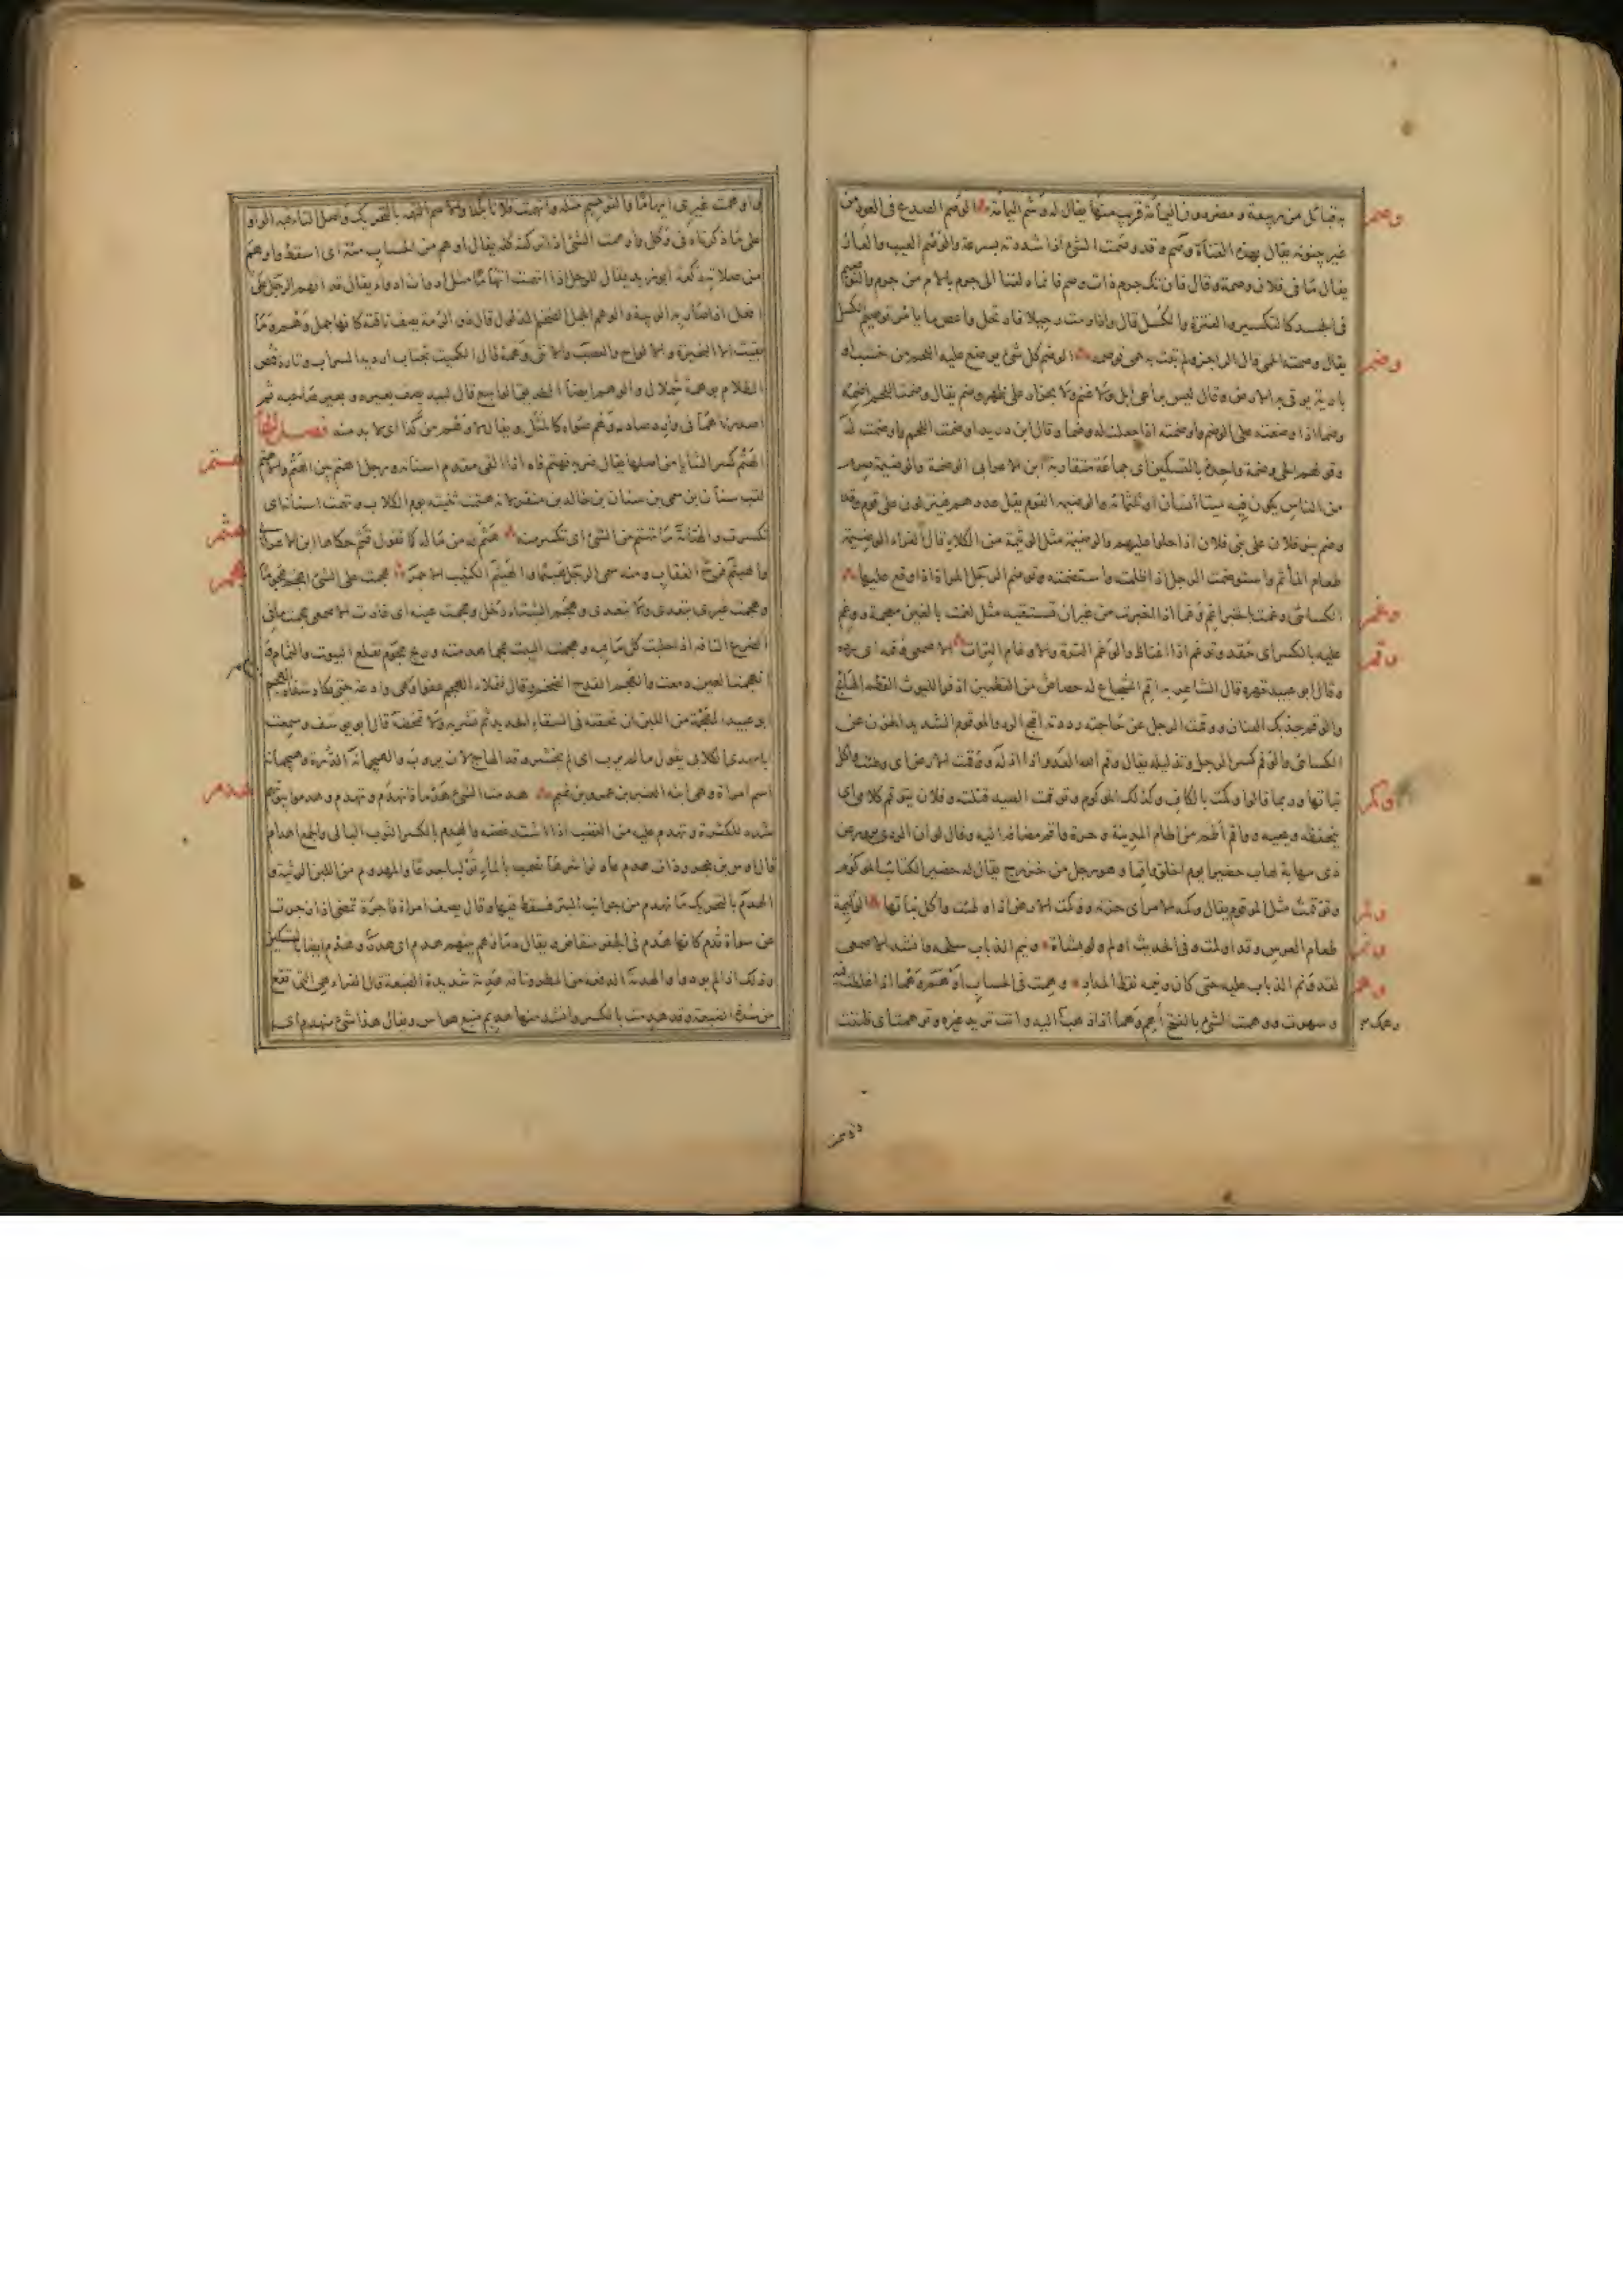 وصم
به قبائل من ربيعة ومضر دون اليمامة قريب منها يقال له وشم اليمامة الوصم الصدع في العود من
غير بينونة يقال بهذه القناة وصم وقد وصمت الشئ اذا شددته بسرعة والوصم العيب والعار
يقال ما في فلان وصمة وقال فان تك جرم ذات وصم فانما دلفنا الى جرم بالام من جرم والتوصيم
في الجسد كالتكسير والفترة والكسل قال واذا رمت رحيلا فارتحل واعص ما يأمر توصيم الكسل
وضم
يقال وصمته الحمى قال الراجز ولم تبت به حمى توصمه الوضم كل شئ يوضع عليه اللحم من خشب او
بارية يوقى به الارض وقال ليس براعي ابل ولا غنم ولا بجزار على ظهر وضم يقال وضمت اللحم اضمه
وضما اذا وضعته على الوضم واوضمته اذا جعلت له وضما وقال ابن دريد اوضمت اللحم واوضمت له
وقولهم الحى وضمة واحدة بالتسكين اى جماعة متقاربة ابن الاعرابى الوضمة والوضيمة صرم
من الناس يكون فيه مئتا انسان او ثلثمائة والوضيمة القوم يقل عددهم فينزلون على قوم وقد
وضم بنو فلان على بنى فلان اذا حلوا عليهم والوضيمة مثل الوثيمة من الكلاء قال الفراء الوضيمة
طعام المأتم واستوضمت الرجل اذا ظلمته واستضمته وتوضم الرجل المراة اذا وقع عليها
وغم
الكسائى وغمت بالخبر اغم وغما اذا اخبرت من غير ان تستيقنه مثل لغمت بالغين معجمة ووغم
وقم
عليه بالكسر اى حقد وتوغم اذا اغتاظ والوغم الترة والاوغام الترات الاصمعى وقمه اى رده
وقال ابو عبيدة قهره قال الشاعر به اقم الشجاع له حصاص من القطمين اذ فر الليوث
والوقم جذبك العنان ووقمت الرجل عن حاجته رددته اقبح الرد والموقوم الشديد الحزن عن
الكسائى والوقم كسر الرجل وتذليله يقال وقم الله العدو اذا اذله ووقمت الارض اى وطئت واكل
وكم
نباتها وربما قالوا وكمت بالكاف وكذلك الموكوم وتوقمت الصيد قتلته وفلان يتوقم كلامى اى
يتحفظه ويعيه وواقم أطم من اطام المدينة وحرة واقم مضافة اليه وقال لو ان الردى يزور عن
ذى مهابة لهاب حضيرا يوم اغلق واقما وهو رجل من خزرج يقال له حضير الكتائب الموكوم
ولم
وتوقمت مثل الموقوم يقال وكمه الامر اى حزنه ووكمت الارض اذا وطئت واكل نباتها الوليمة
ونم
طعام العرس وقد اولمت وفى الحديث اولم ولو بشاة ونيم الذباب سلحه وانشد الاصمعى
وهم
لقد ونم الذباب عليه حتى كان ونيمه نقط المداد وهمت فى الحساب اوهم وهما اذا غلطت فيه
وسهوت ووهمت الشئ بالفتح أهم وهما اذا ذهب اليه وانت تريد غيره وتوهمت اى ظننت
واوهمت غيرى ايهاما والتوهيم مثله واتهمت فلانا بكذا والاسم التهمة بالتحريك واصل التاء فيه الواو
على ما ذكرناه فى وكل واوهمت الشئ اذا تركته كله يقال اوهم من الحساب مئة اى اسقط واوهم
من صلاته ركعة ابو زيد يقال للرجل اذا اتهمته اتهاما مثل ادوات ادواء يقال قد اتهم الرجل على
افعل اذا صارت به الريبة والوهم الجمل الضخم الذلول قال ذو الرمة يصف ناقته كانها جمل وهم وما
بقيت الا النحيزة والالواح والعصب والانثى وهمة قال الكميت تجتاب اردية السراب وتارة قمص
الظلام بوهمة شملال والوهم ايضا الطريق الواسع قال لبيد يصف بعيره وبعير صاحبه ثم
اصدرناهما فى وارد صادر وهم صواه كالمثل ويقال لا وهم من كذا اى لا بد منه فصل الهاء
هتم
الهتم كسر الثنايا من اصلها يقال ضربه فهتم فاه اذا القى مقدم اسنانه ورجل اهتم بين الهتم والاهتم
لقب سنان بن سمى بن سنان بن خالد بن منقر لانه هتمت ثنيته يوم الكلاب وتهتمت اسنانه اى
هثم
تكسرت والهتامة ما تهتم من الشئ اى تكسر منه هثم له من ماله كما تقول قثم حكاها ابن الاعرابى
هجم
والهيثم فرخ العقاب ومنه سمى الرجل هيثما والهيثم الكثيب الاحمر هجمت على الشئ اهجم هجوما
وهجمت غيرى يتعدى ولا يتعدى وهجم الشتاء دخل وهجمت عينه اى غارت الاصمعى هجمت ما فى
الضرع الناقة اذا حلبت كل ما فيه وهجمت البيت هجما هدمته وريح هجوم تقلع البيوت والثمام
انهجمت العين دمعت والهجم القدح الضخم وقال فتملاء الهجم عفوا وهى وادعة حتى تكاد شفاه الهجم
ابو عبيد الهجيمة من اللبن ان تحقنه فى السقاء الجديد ثم تشربه ولا تمخضه قال ابو يوسف وسمعت
ابا مهدى الكلابى يقول ما لم يرب اى لم يخثر وقد الهاج لان يروب والهيجمانة الدرة وهيجمانة
هدم
اسم امراة وهى ابنة العنبر بن عمرو بن تميم هدمت الشئ هدما فانهدم وتهدم وهدموا بيوتهم
شدد للكثرة وتهدم عليه من الغضب اذا اشتد غضبه والهدم بالكسر الثوب البالى والجمع اهدام
قال اوس بن حجر وذات هدم عار نواشرها تصمت بالماء تولبا جدعا والمهدوم من اللبن الرثيئة و
الهدم بالتحريك ما تهدم من جوانب البئر فسقط فيها وقال يصف امراة فاجرة تمضى اذا زجرت
عن سواة قدما كانها هدم فى الجفر منقاض ويقال دماؤهم بينهم هدم اى هدر وهدم ايضا بالتسكين
وذلك اذا لم يودوا والهدمة الدفعة من المطر وناقة هدمة شديدة الضبعة قال الفراء هى التى تقع
من شدة الضبعة وقد هدمت بالكسر وانشد منها هديم ضبع هواس ويقال هذا شئ مهندم اى